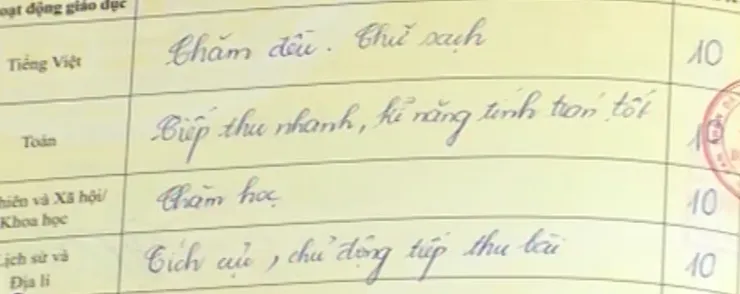 oạt động giáo dục
Tiếng Việt
Chăm đều. Chữ sạch
10
Toán
Tiếp thu nhanh, kĩ năng tính toán tốt
10
hiên và Xã hội/
Khoa học
Chăm học
10
Lịch sử và
Địa lí
Tích cực, chủ động tiếp thu bài
10